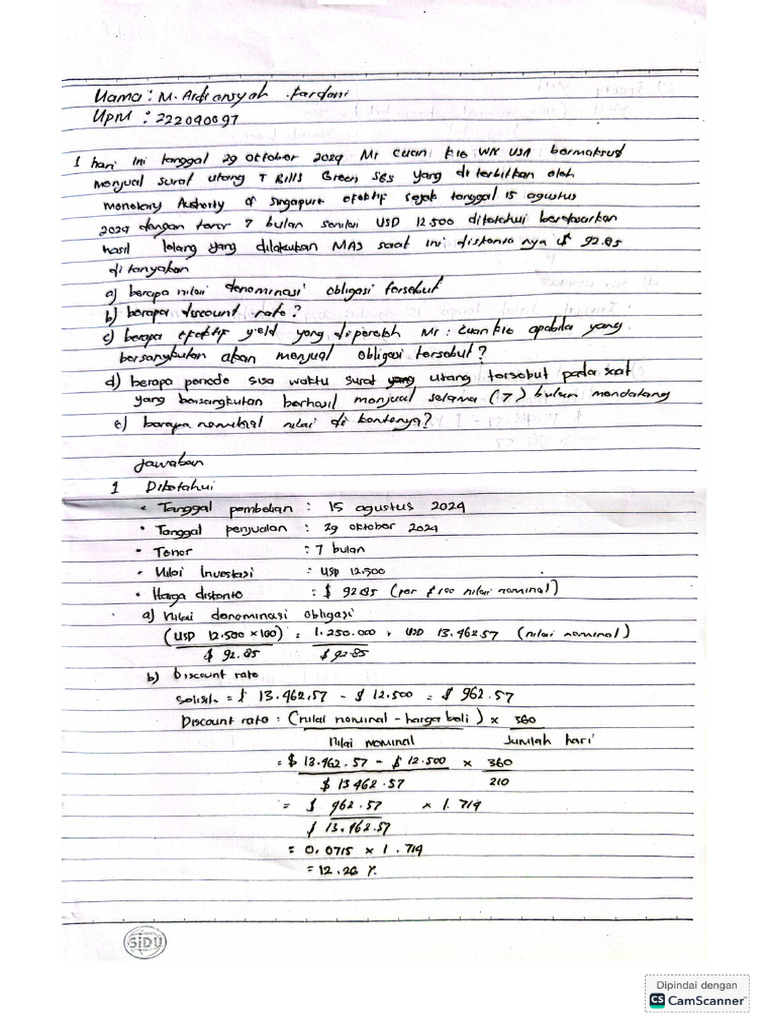 Nama : M. Ardiansyah . Fardani
NPM : 222040097
1 hari ini tanggal 29 oktober 2024 Mr Cuan kie WN USA bermaksud
menjual surat utang T Bills Green SGS yang diterbitkan oleh
monetary Authority of singapure efektif sejak tanggal 15 agustus
2024 dengan tenor 7 bulan senilai USD 12.500 diketahui berdasarkan
hasil lelang yang dilakukan MAS saat ini diskonto nya $ 92.85
ditanyakan
a) berapa nilai denominasi obligasi tersebut
b) berapa discount rate ?
c) berapa efektif yield yang diperoleh Mr : Cuan kie apabila yang
bersangkutan akan menjual obligasi tersebut ?
d) berapa periode sisa waktu surat yang utang tersebut pada saat
yang bersangkutan berhasil menjual selama (7) bulan mendatang
e) berapa nominal nilai di kontonya ?
Jawaban
1 Diketahui
• Tanggal pembelian : 15 agustus 2024
• Tanggal penjualan : 29 oktober 2024
• Tenor : 7 bulan
• Nilai Investasi : USD 12.500
• Harga diskonto : $ 92.85 (per $ 100 nilai nominal)
a) nilai denominasi obligasi
(USD 12.500 x 100) = 1.250.000 = USD 13.462.57 (nilai nominal)
$ 92.85 $ 92.85
b) Discount rate
Selisih = $ 13.462.57 - $ 12.500 = $ 962.57
Discount rate : (nilai nominal - harga beli) x 360
Nilai nominal Jumlah hari
= $ 13.462.57 - $ 12.500 x 360
$ 13 462.57 210
= $ 962.57 x 1.714
$ 13.462.57
= 0,0715 x 1.714
= 12.26 %
SiDU
Dipindai dengan
CS CamScanner